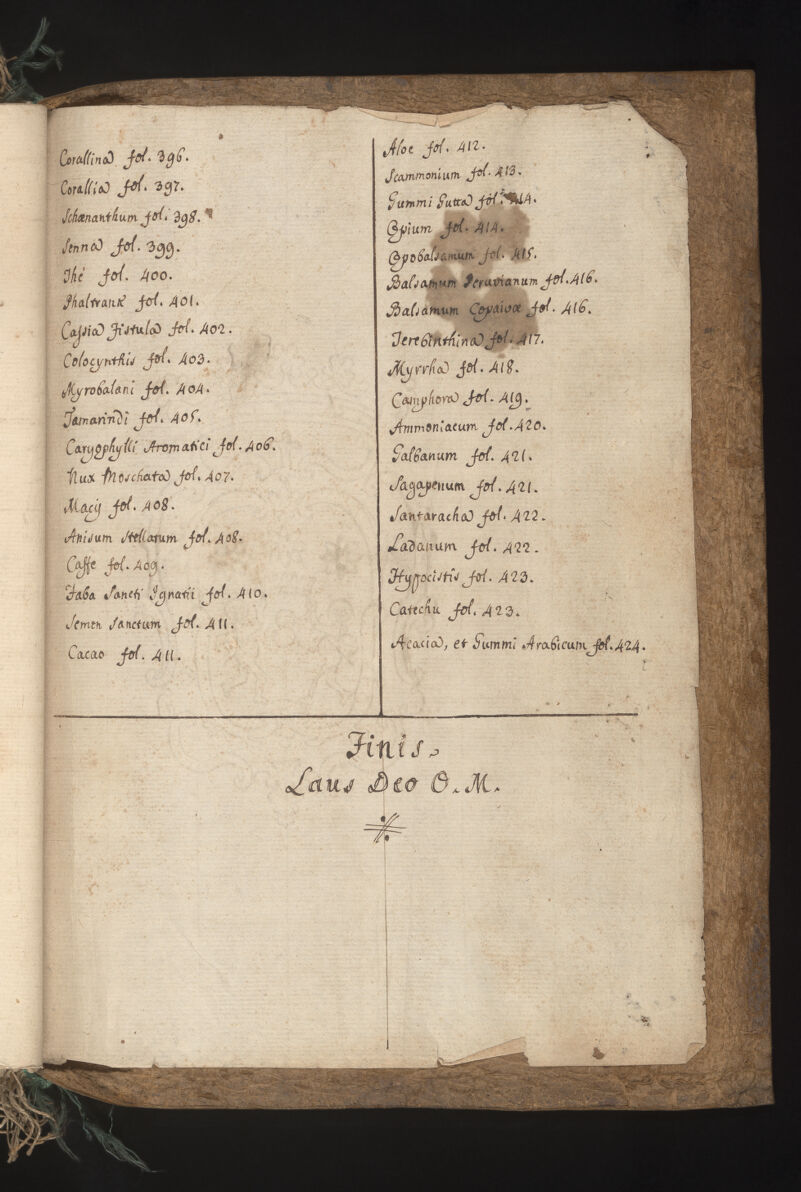 Corallina fol. 396.
Corallia fol. 397.
Schœnanthum fol. 398.
Senna fol. 399.
Thé fol. 400.
Phaltrank fol. 401.
Cassia Fistula fol. 402.
Colocynthis fol. 403.
Myrobalani fol. 404.
Tamarindi fol. 405.
Caryophylli Aromatici fol. 406.
Nux Moschata fol. 407.
Macis fol. 408.
Anisum Stellatum fol. 408.
Caffe fol. 409.
Faba Sancti Ignatii fol. 410.
Semen Sanctum fol. 411.
Cacao fol. 411.
Aloe fol. 412.
Scammonium fol. 413.
Gummi Gutta fol. 414.
Opium fol. 414.
Opobalsamum fol. 415.
Balsamum Peruvianum fol. 416.
Balsamum Copaivæ fol. 416.
Terebinthina fol. 417.
Myrrha fol. 418.
Camphora fol. 419.
Ammoniacum fol. 420.
Galbanum fol. 421.
Sagapenum fol. 421.
Santaracha fol. 422.
Ladanum fol. 422.
Hypocistis fol. 423.
Catechu fol. 423.
Acacia, et Gummi Arabicum fol. 424.
Finis.
Laus Deo O. M.